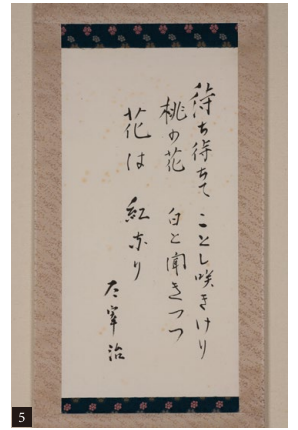 待ち待ちて ことし咲きけり
桃の花 白と聞きつつ
花は 紅なり
太宰治
5